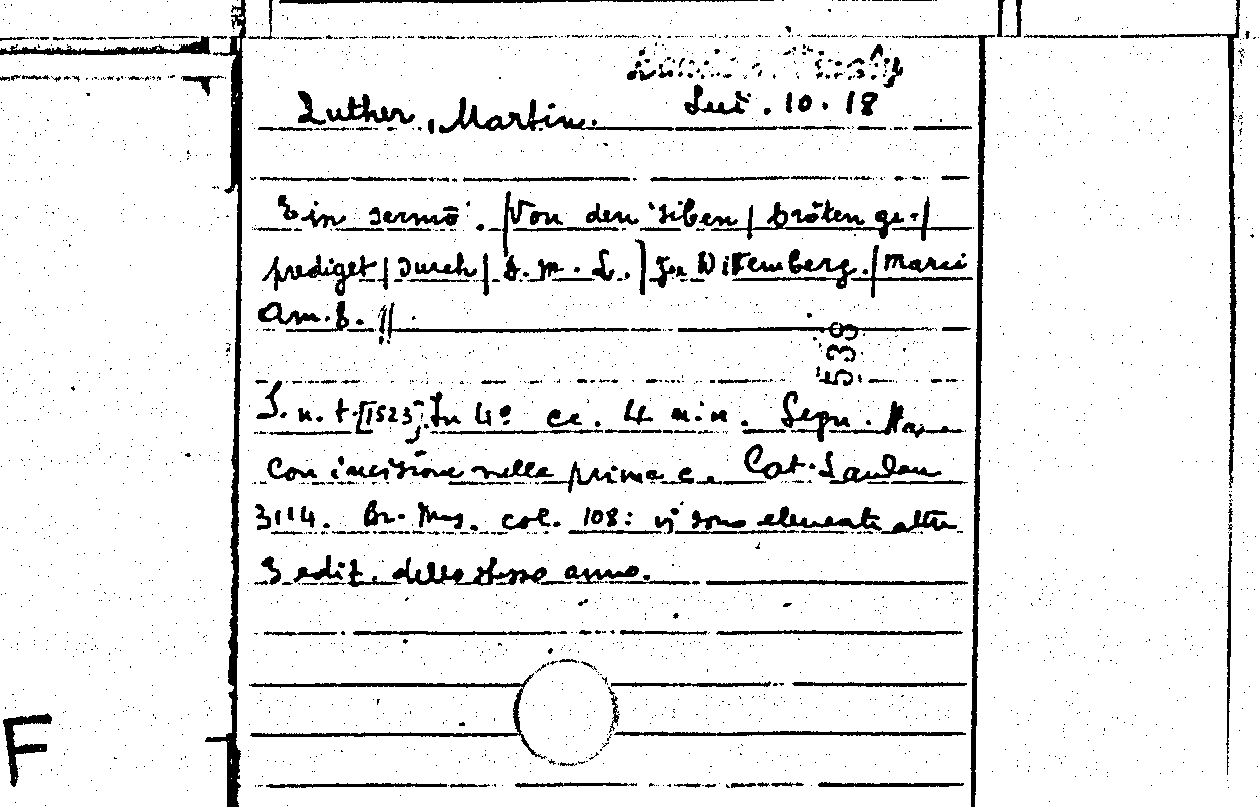 Luther, Martin.
Lut. 10. 18
Ein sermō. | Von den siben | bröten ge- |
prediget | durch | D. M. L. | zu Wittemberg. | Marci
Am. 8. ||
538
S. n. t. [1523]. In 4° cc. 4 n. n. Segn.
con incisione nella prima c. Cat.
3114. Br. Mus. col. 108: vi sono elencate altre
3 edit. dello stesso anno.
F